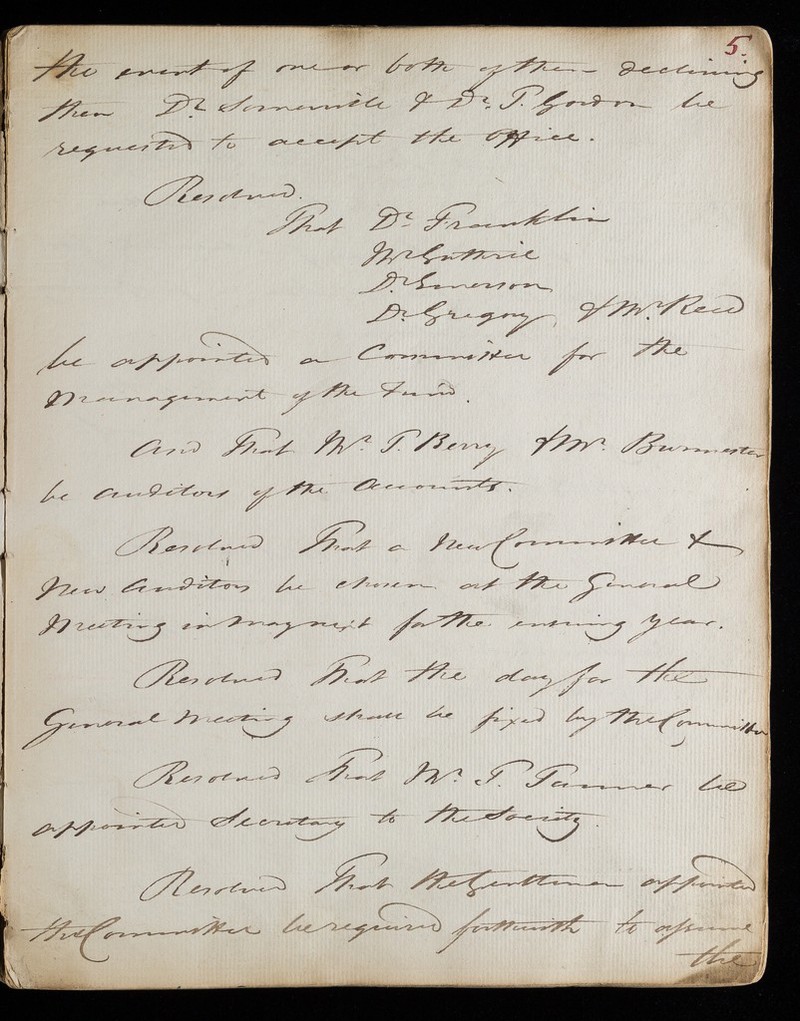 5.
the event of one or both of them declining
then Dr. Somerville & Dr. T. Gordon be
requested to accept the Office.
Resolved.
That Dr. Franklin
Mr Guthrie
Dr. Emerson
Dr. Gregory, & Mr. Reed
be appointed a Committee for the
Management of the Fund.
And That Mr. T. Berry & Mr. Burmester
be Auditors of the Accounts.
Resolved That a New Committee &
New Auditors be chosen at the General
Meeting in May next for the ensuing Year.
Resolved That the day for the
General Meeting shall be fixed by the Committee
Resolved That Mr. T. Tanner be
appointed Secretary to the Society.
Resolved That the Gentlemen appointed
the Committee be required forthwith to assume
the